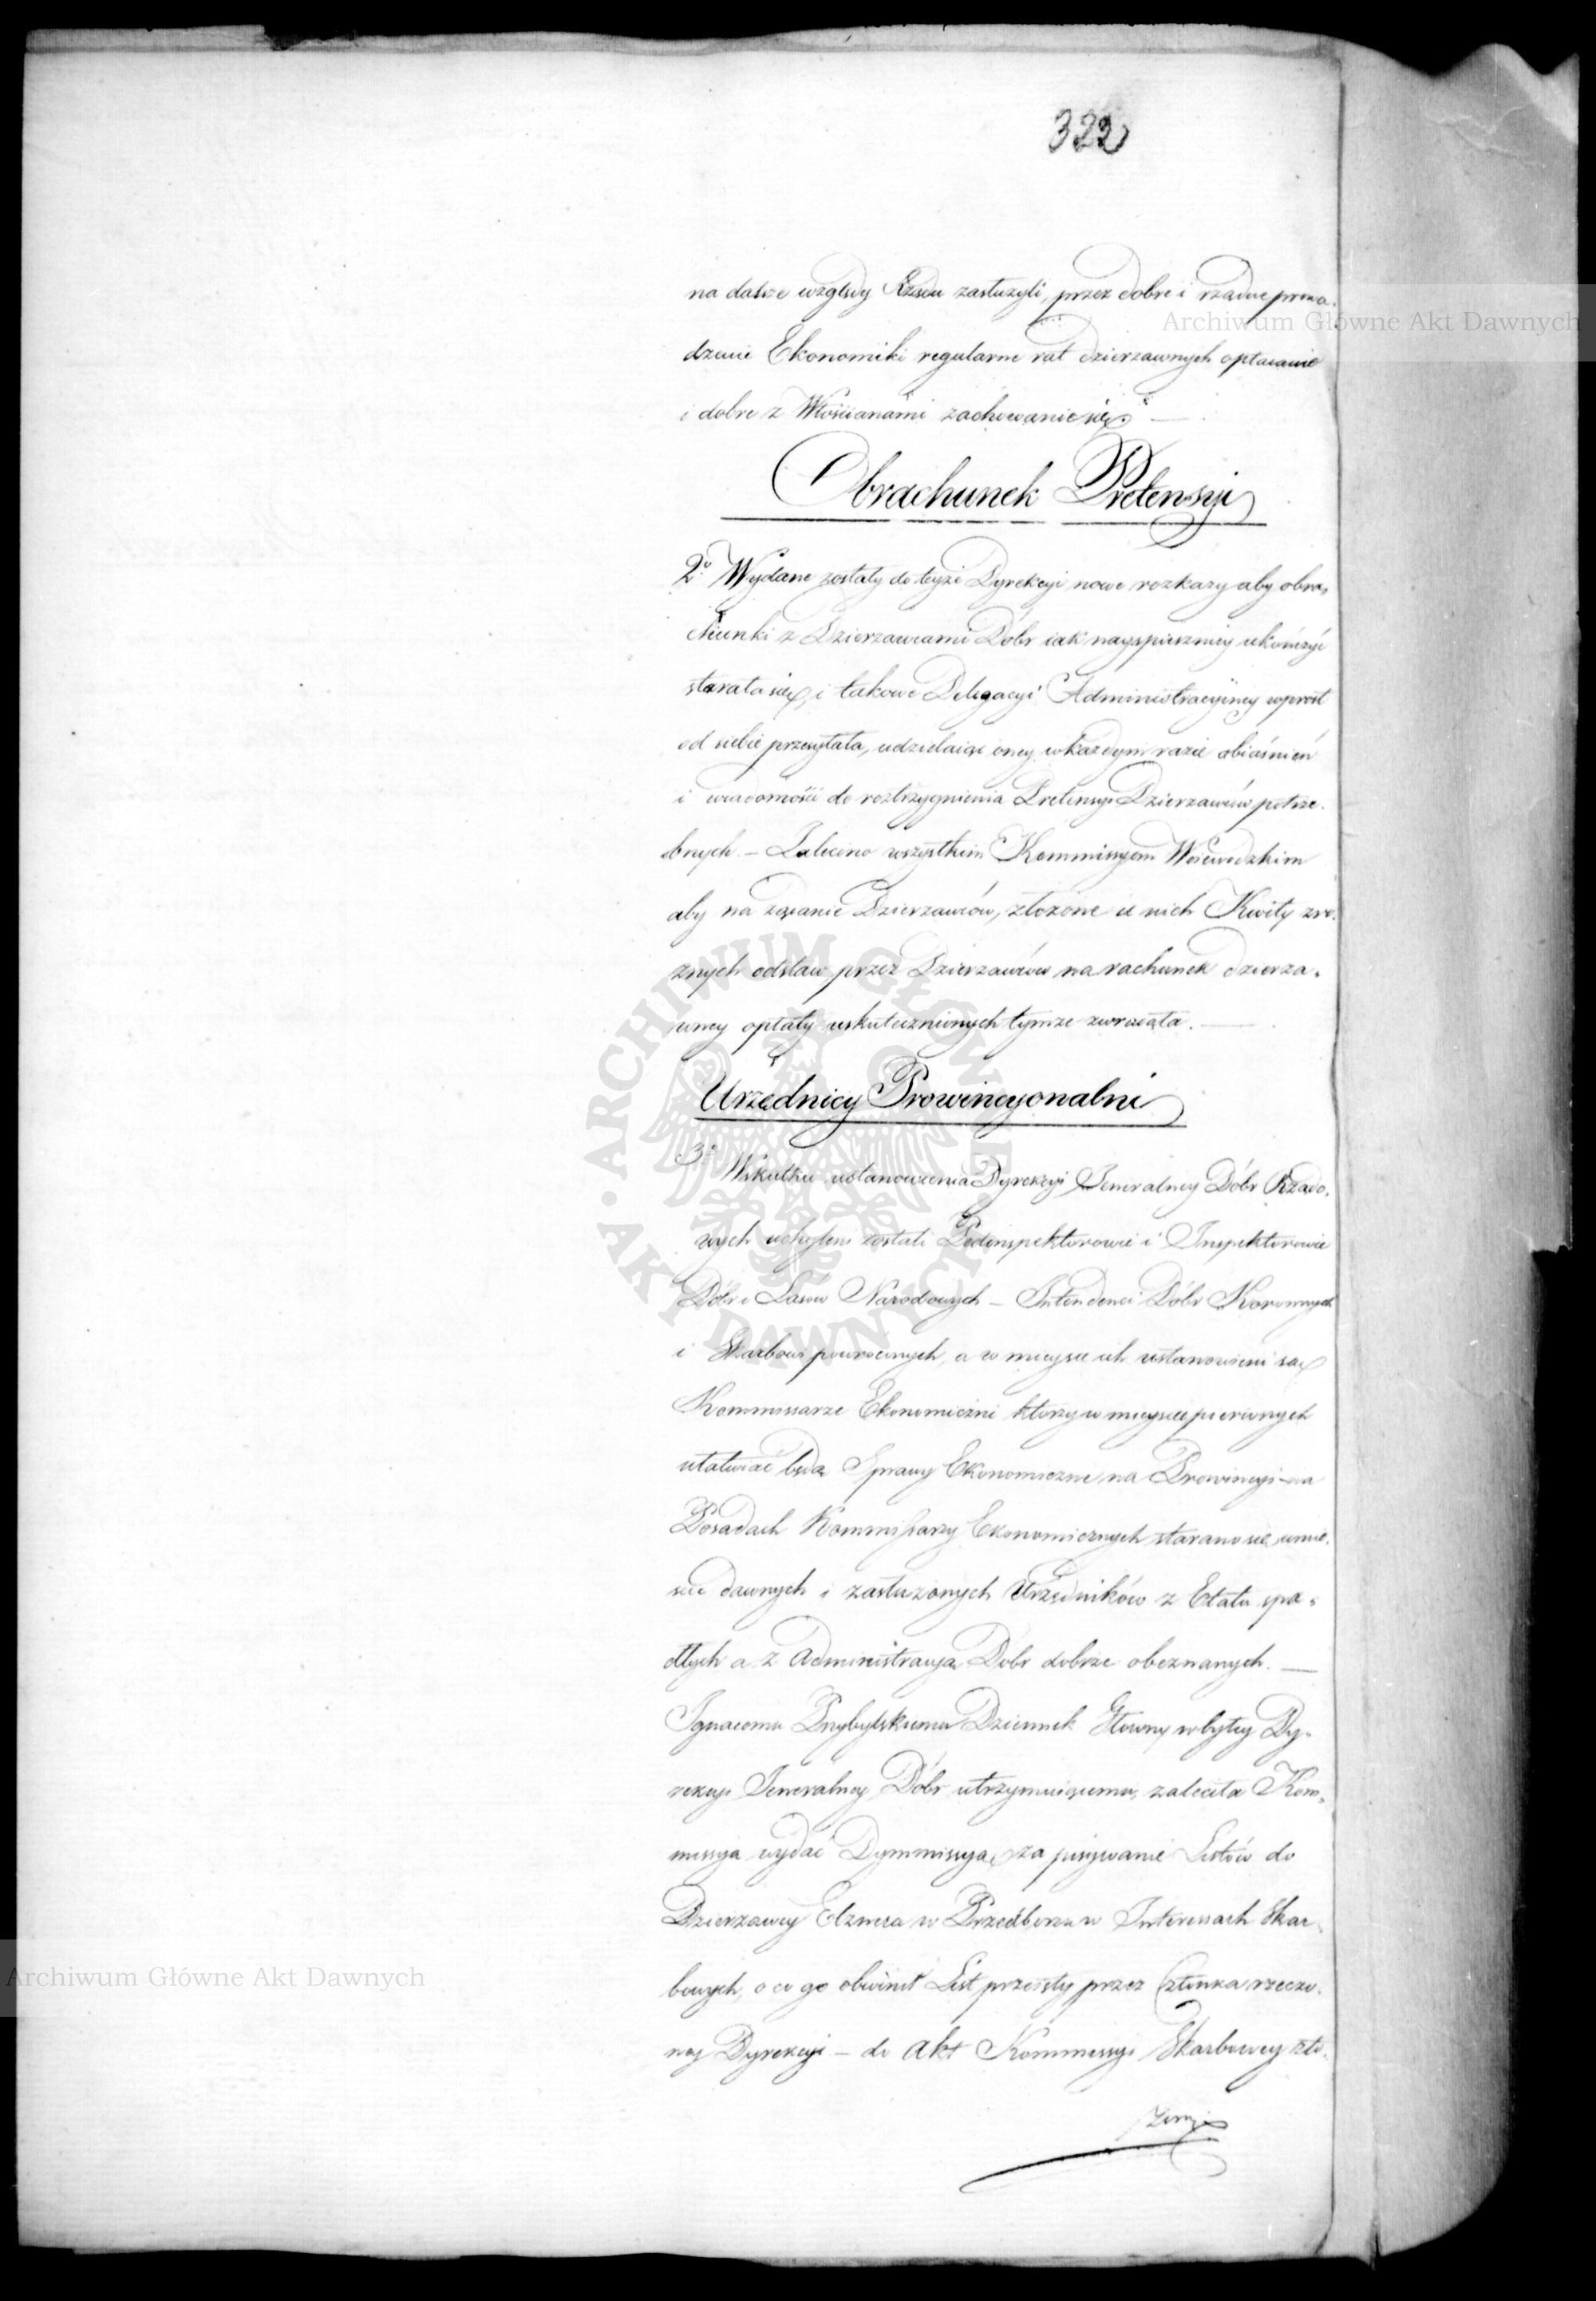 322
na dalsze względy Rządu zasłużyli, przez dobre i rządne prowa-
dzenie Ekonomiki regularne rat dzierzawnych opłacanie
i dobre z Włościanami zachowanie się.
Obrachunek Pretensyi
2o Wydane zostały do teyże Dyrekcyi nowe rozkazy aby obra-
chunki z Dzierzawcami Dóbr iak nayspieszniey ukończyć
starała się, i takowe Delegacyi Administracyiney wprost
od siebie przesyłała, udzielaiąc oney w każdym razie obiaśnień
i wiadomości do roztrzygnienia Pretensyi Dzierzawców potrze-
bnych. – Zalecono wszystkim Kommissyom Woiewodzkim
aby na żądanie Dzierzawców, złożone u nich Kwity z ro-
żnych odstaw przez Dzierzawców na rachunek dzierza-
wney opłaty uskutecznionych tymże zwracała. —
Urzędnicy Prowincyonalni
3o Wskutku ustanowienia Dyrekcyi Jeneralney Dóbr Rządo-
wych uchyleni zostali Podinspektorowie i Inspektorowie
Dóbr i Lasów Narodowych – Intendenci Dóbr Koronnych
i Skarbowi powróconych, a w mieysce ich ustanowieni są
Kommissarze Ekonomiczni którzy w mieysce pierwnych
ułatwiać będą Sprawy Ekonomiczne na Prowincyi – na
Posadach Kommissarzy Ekonomicznych starano się umie-
ścić dawnych i zasłużonych Urzędników z Etatu spa-
dłych a z Administracyą Dobr dobrze obeznanych. —
Ignacemu Przybylskiemu Dziennik Główny w byłey Dy-
rekcyi Jeneralney Dóbr utrzymuiącemu, zaleciła Kom-
missya wydać Dymmissyą za pisywanie Listów do
Dzierzawcy Elznera w Przedborzu w Interessach Skar-
bowych, o co go obwinił List przeięty przez Członka rzeczo-
ney Dyrekcyi – do Akt Kommissyi Skarbowey zło-
żony
Archiwum Główne Akt Dawnych
Archiwum Główne Akt Dawnych
ARCHIWUM GŁÓWNE AKT DAWNYCH